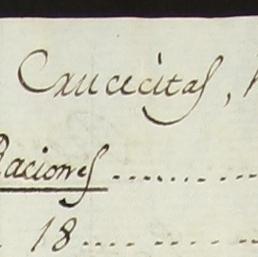 Crucecitas,
Raciones ..........
18 ..........